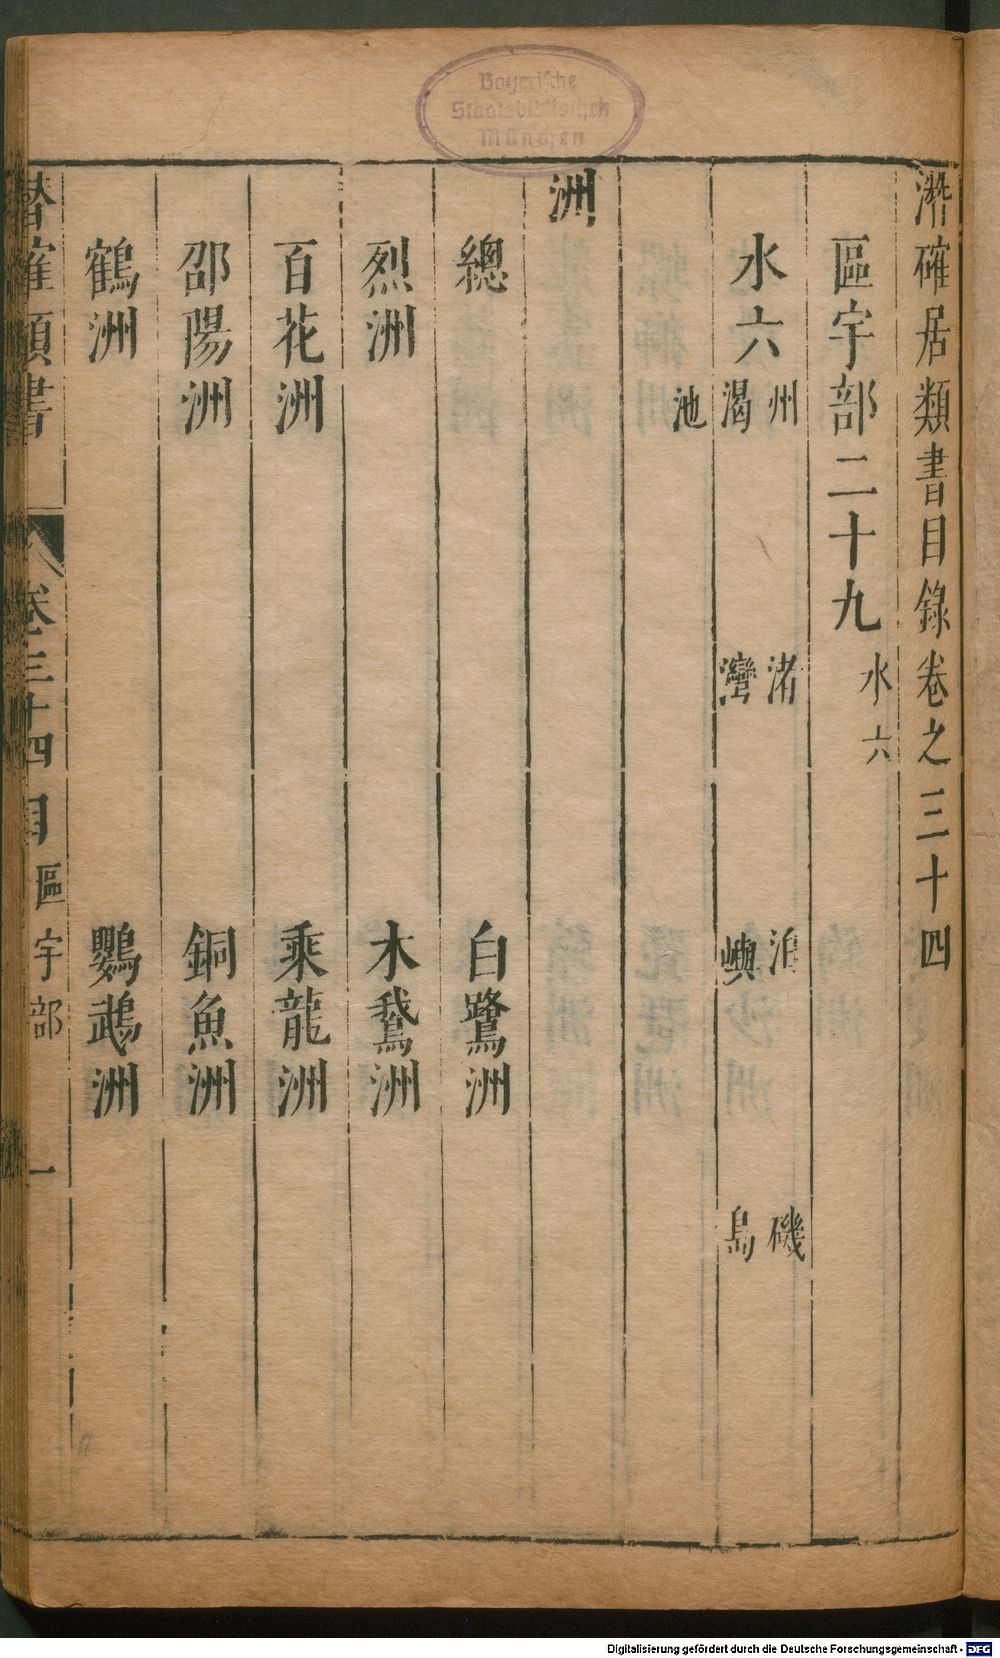 Bayerische
Staatsbibliothek
München
潛確居類書目錄卷之三十四
區宇部二十九 水六
水六 州 渚 泊 磯
渴 灣 嶼 島
池
洲
總 白鷺洲
烈洲 木鵞洲
百花洲 乘龍洲
邵陽洲 銅魚洲
鶴洲 鸚鵡洲
潛確類書 卷三十四目 區宇部 一
Digitalisierung gefördert durch die Deutsche Forschungsgemeinschaft - DFG